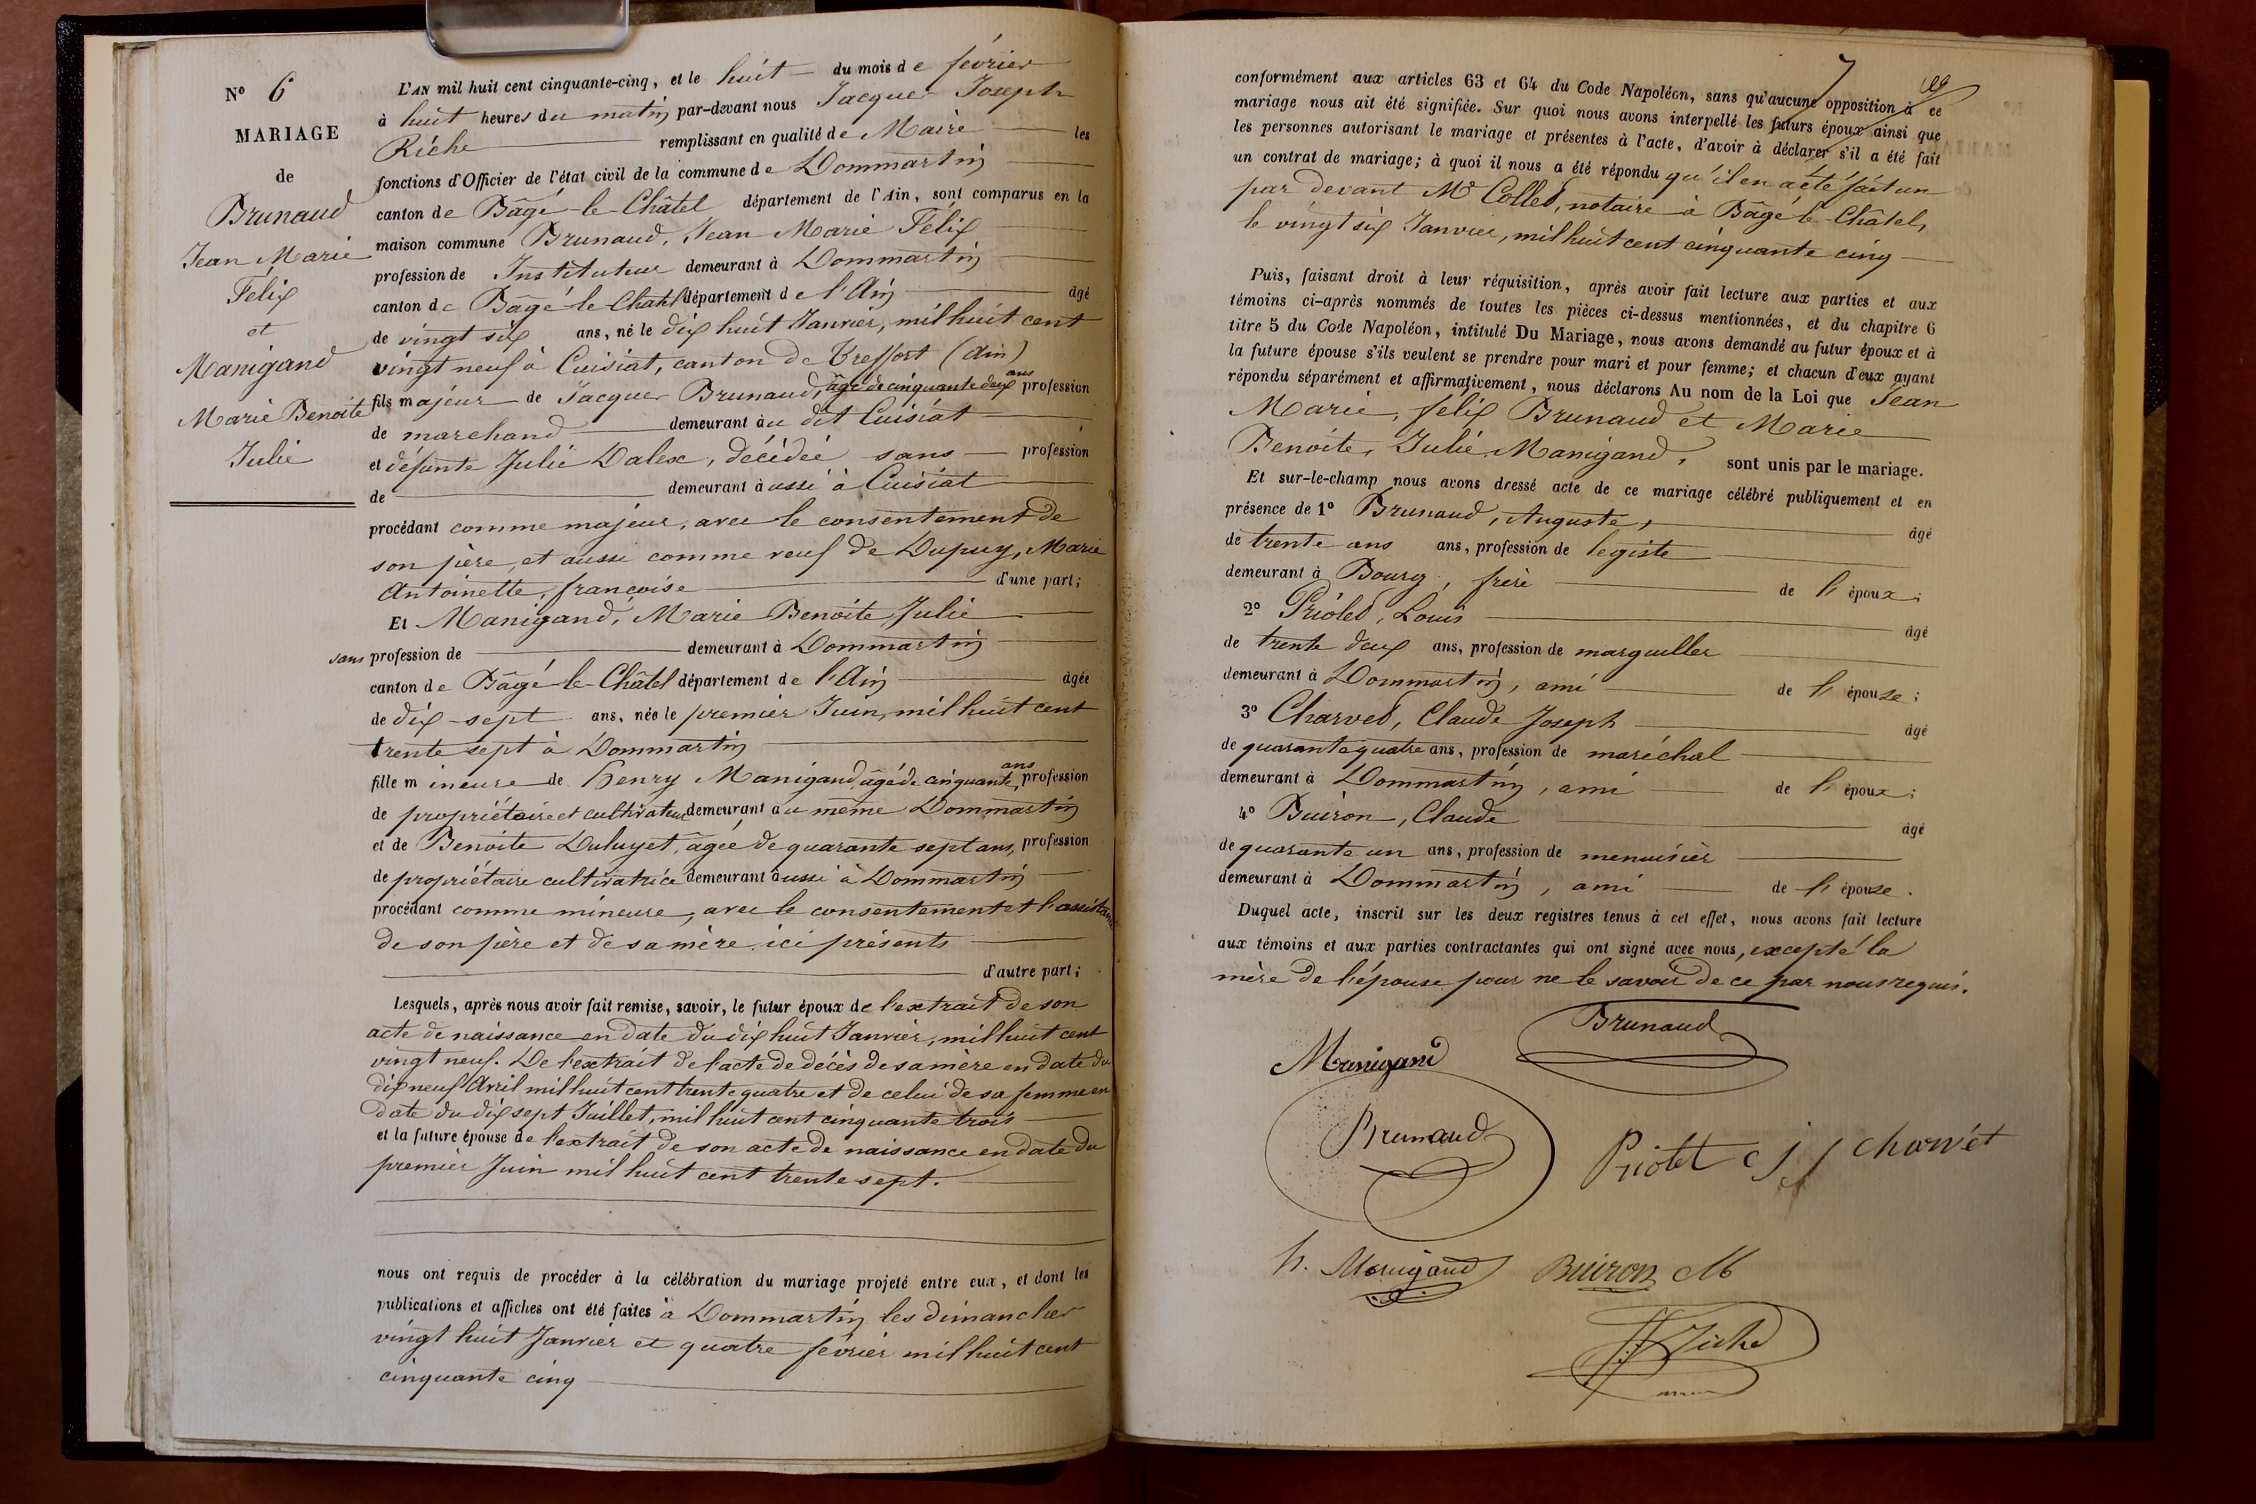 N° 6
MARIAGE
de
Brunaud
Jean Marie
Félix
et
Manigand
Marie Benoite
Julie
L'AN mil huit cent cinquante-cinq, et le huit du mois de février
à huit heures du matin par-devant nous Jacques Joseph
Riche remplissant en qualité de Maire les
fonctions d'Officier de l'état civil de la commune de Dommartin
canton de Bâgé-le-Châtel département de l'Ain, sont comparus en la
maison commune Brunaud, Jean Marie Félix
profession de Instituteur demeurant à Dommartin
canton de Bâgé-le-Châtel département de l'Ain âgé
de vingt six ans, né le dix huit Janvier, mil huit cent
vingt neuf à Cuisiat, canton de Treffort (Ain)
fils majeur de Jacques Brunaud, âgé de cinquante deux ans profession
de marchand demeurant au dit Cuisiat
et défunte Julie Dalex, décédée sans profession
de demeurant aussi à Cuisiat
procédant comme majeur, avec le consentement de
son père, et aussi comme veuf de Dupuy, Marie
Antoinette, françoise d'une part;
Et Manigand, Marie Benoite Julie
sans profession de demeurant à Dommartin
canton de Bâgé-le-Châtel département de l'Ain âgée
de dix-sept ans, née le premier Juin, mil huit cent
trente sept à Dommartin
fille mineure de henry Manigand, âgé de cinquante ans, profession
de propriétaire et cultivateur demeurant au même Dommartin
et de Benoite Duluyet, âgée de quarante sept ans, profession
de propriétaire cultivatrice demeurant aussi à Dommartin
procédant comme mineure, avec le consentement et l'assistance
de son père et de sa mère ici présents
d'autre part;
Lesquels, après nous avoir fait remise, savoir, le futur époux de l'extrait de son
acte de naissance en date du dix huit Janvier, mil huit cent
vingt neuf. De l'extrait de l'acte de décès de sa mère en date du
dix neuf Avril mil huit cent trente quatre et de celui de sa femme en
date du dix sept Juillet, mil huit cent cinquante trois
et la future épouse de l'extrait de son acte de naissance en date du
premier Juin mil huit cent trente sept.
nous ont requis de procéder à la célébration du mariage projeté entre eux, et dont les
publications et affiches ont été faites à Dommartin les dimanches
vingt huit Janvier et quatre février mil huit cent
cinquante cinq
7
conformément aux articles 63 et 64 du Code Napoléon, sans qu'aucune opposition à ce
mariage nous ait été signifiée. Sur quoi nous avons interpellé les futurs époux ainsi que
les personnes autorisant le mariage et présentes à l'acte, d'avoir à déclarer s'il a été fait
un contrat de mariage; à quoi il nous a été répondu qu'il en a été fait un
par devant Me Collet, notaire à Bâgé-le-Châtel,
le vingt six Janvier, mil huit cent cinquante cinq
Puis, faisant droit à leur réquisition, après avoir fait lecture aux parties et aux
témoins ci-après nommés de toutes les pièces ci-dessus mentionnées, et du chapitre 6
titre 5 du Code Napoléon, intitulé Du Mariage, nous avons demandé au futur époux et à
la future épouse s'ils veulent se prendre pour mari et pour femme; et chacun d'eux ayant
répondu séparément et affirmativement, nous déclarons Au nom de la Loi que Jean
Marie, félix Brunaud et Marie
Benoite, Julie Manigand, sont unis par le mariage.
Et sur-le-champ nous avons dressé acte de ce mariage célébré publiquement et en
présence de 1° Brunaud, Auguste, âgé
de trente ans ans, profession de legiste
demeurant à Bourg, frère de l'époux;
2° Priolet, Louis âgé
de trente deux ans, profession de marguiller
demeurant à Dommartin, ami de l'épouse;
3° Charvet, Claude Joseph âgé
de quarante quatre ans, profession de maréchal
demeurant à Dommartin, ami de l'époux;
4° Buiron, Claude âgé
de quarante un ans, profession de menuisier
demeurant à Dommartin, ami de l'épouse.
Duquel acte, inscrit sur les deux registres tenus à cet effet, nous avons fait lecture
aux témoins et aux parties contractantes qui ont signé avec nous, excepté la
mère de l'épouse pour ne le savoir de ce par nous requis.
Brunaud
Manigand
Brunaud
Priolet C J charvet
h. Manigand Buiron
JJ Riche